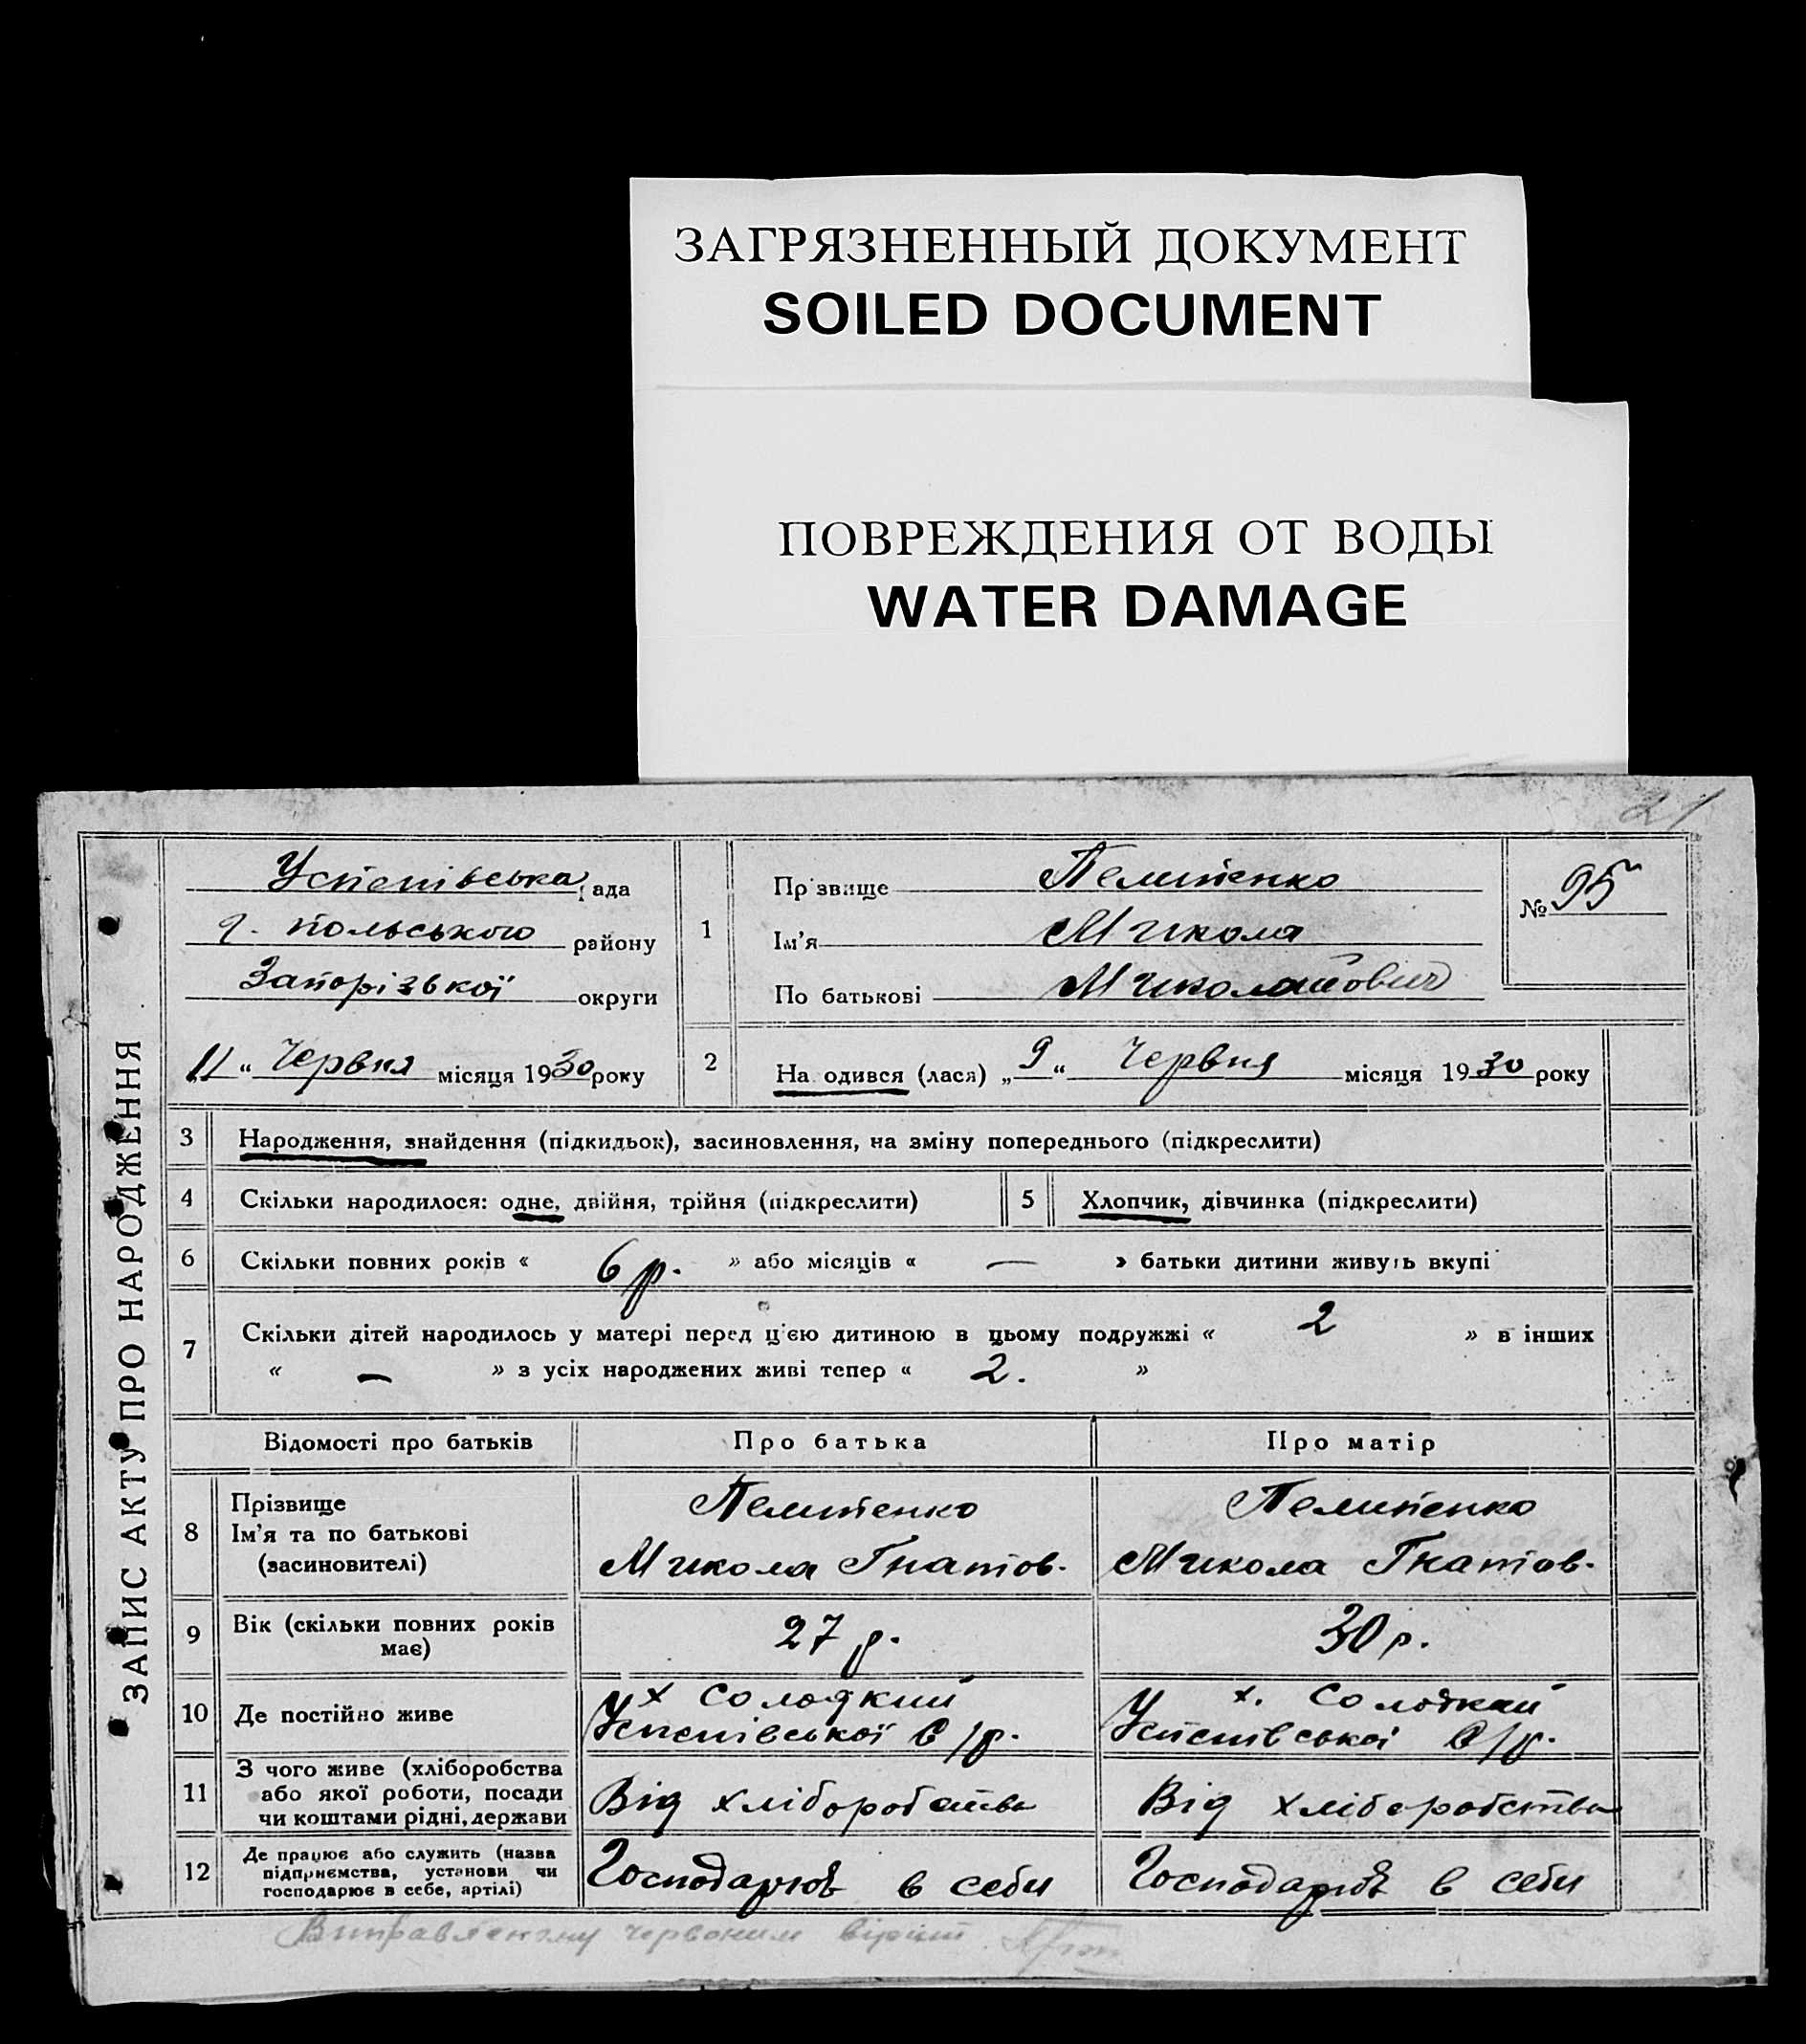 ЗАГРЯЗНЕННЫЙ ДОКУМЕНТ
SOILED DOCUMENT
ПОВРЕЖДЕНИЯ ОТ ВОДЫ
WATER DAMAGE
21
ЗАПИС АКТУ ПРО НАРОДЖЕННЯ
Успенівська рада
г. польського району
Запорізької округи
11 “ Червня місяця 1930 року
1
Прізвище Пелипенко
Ім’я Микола
По батькові Миколайович
№ 95
2
На одився (лася) „ 9 “ Червня місяця 1930 року
3 Народження, знайдення (підкидьок), засиновлення, на зміну попереднього (підкреслити)
4 Скільки народилося: одне, двійня, трійня (підкреслити) 5 Хлопчик, дівчинка (підкреслити)
6 Скільки повних років « 6 р. » або місяців « — » батьки дитини живуть вкупі
7 Скільки дітей народилось у матері перед ц’єю дитиною в цьому подружжі « 2 » в інших
« — » з усіх народжених живі тепер « 2. »
Відомості про батьків Про батька Про матір
8
Прізвище Пелипенко Пелипенко
Ім’я та по батькові
(засиновителі) Микола Гнатов. Микола Гнатов.
9 Вік (скільки повних років має) 27 р. 30 р.
10 Де постійно живе
х Солодкий х. Солодкий
Успенівської С/р. Успенівської С/р.
11 З чого живе (хліборобства
або якої роботи, посади
чи коштами рідні, держави
Від хліборобства Від хліборобства
12 Де працює або служить (назва
підприємства, установи чи
господарює в себе, артілі)
Господарює в себи Господарює в себи
Виправленому червоним вірит